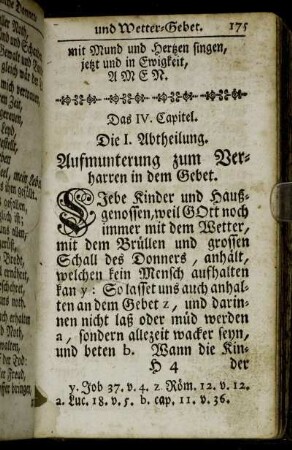 und Wetter-Gebet. 175
mit Mund und Hertzen singen,
jetzt und in Ewigkeit,
AMEN.
Das IV. Capitel.
Die I. Abtheilung.
Aufmunterung zum Ver-
harren in dem Gebet.
LJebe Kinder und Hauß-
genossen, weil GOtt noch
immer mit dem Wetter,
mit dem Brüllen und grossen
Schall des Donners, anhält,
welchen kein Mensch aufhalten
kan y: So lasset uns auch anhal-
ten an dem Gebet z, und darin-
nen nicht laß oder müd werden
a, sondern allezeit wacker seyn,
und beten b. Wann die Kin-
H 4 der
y. Job 37. v. 4. z. Röm. 12. v. 12.
a. Luc. 18. v. 5. b. cap. 11. v. 36.